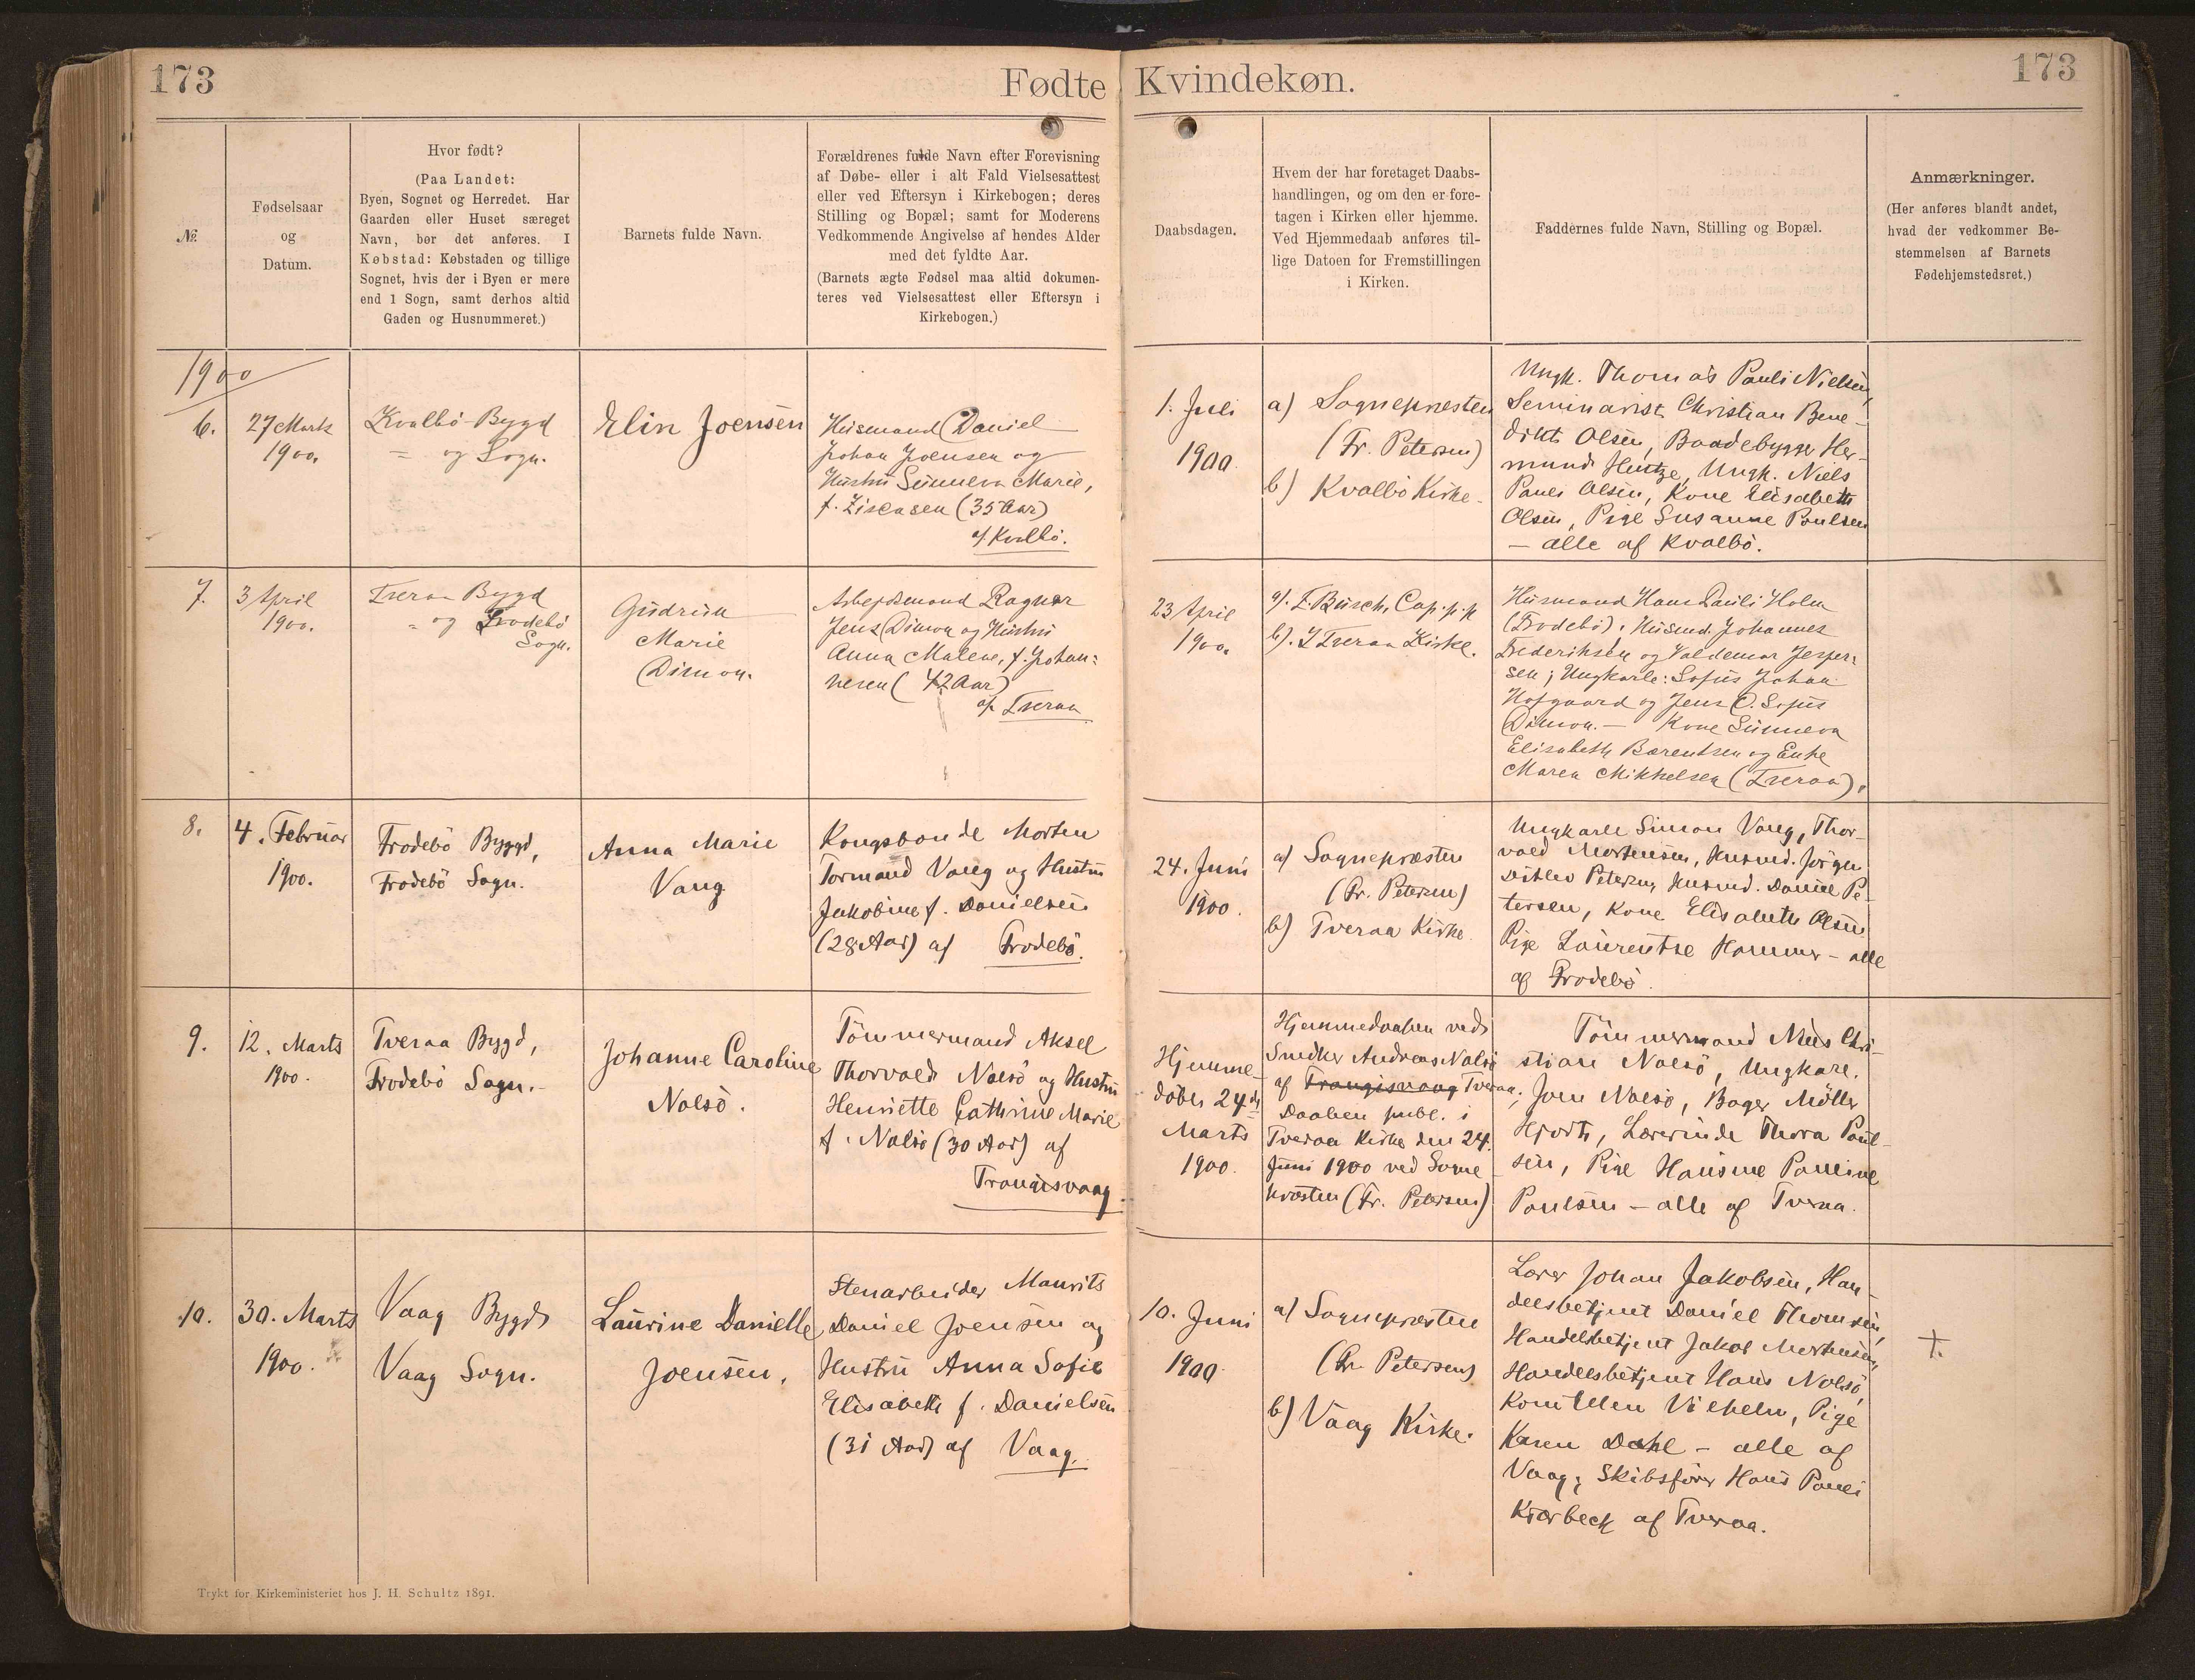 173
Fødte
Kvindekøn.
173
№
Fødselsaar
og
Datum.
Hvor født?
(Paa Landet:
Byen, Sognet og Herredet. Har
Gaarden eller Huset særeget
Navn, bør det anføres. I
Købstad: Købstaden og tillige
Sognet, hvis der i Byen er mere
end 1 Sogn, samt derhos altid
Gaden og Husnummeret.)
Barnets fulde Navn.
Forældrenes fulde Navn efter Forevisning
af Døbe- eller i alt Fald Vielsesattest
eller ved Eftersyn i Kirkebogen; deres
Stilling og Bopæl; samt for Moderens
Vedkommende Angivelse af hendes Alder
med det fyldte Aar.
(Barnets ægte Fødsel maa altid dokumen-
teres ved Vielsesattest eller Eftersyn i
Kirkebogen.)
Daabsdagen.
Hvem der har foretaget Daabs-
handlingen, og om den er fore-
tagen i Kirken eller hjemme.
Ved Hjemmedaab anføres til-
lige Datoen for Fremstillingen
i Kirken.
Faddernes fulde Navn, Stilling og Bopæl.
Anmærkninger.
(Her anføres blandt andet,
hvad der vedkommer Be-
stemmelsen af Barnets
Fødehjemstedsret.)
1900
6.
27 Marts
1900.
Kvalbö Bygd
= og Sogn.
Elin Joensen
Husmand Daniel
Johan Joensen og
Hustru Sunneva Marie,
f. (35 Aar)
af Kvalbö.
1. Juli
1900.
a) Sognepræsten
(Fr. Petersen)
b) Kvalbö Kirke.
Ungk. Thomas Pauli Nielsen,
Seminarist Christian Bene-
dikt Olsen, Baadebygger Her-
mund Hentze, Ungk. Niels
Pauli Olsen, Kone Elisabeth
Olsen, Pige Susanne Poulsen
— alle af Kvalbö.
7.
3 April
1900.
Tveraa Bygd
= og Frodebö
Sogn.
Gudrun
Marie
Dimon.
Arbejdsmand Ragnar
Jens Dimon og Hustru
Anna Malene, f. Johan=
nesen (42 Aar)
af Tveraa
23 April
1900.
a). F. Busch, Cap. p. p
b). I Tveraa Kirke.
Husmand Hans Pauli Holm
(Frodebö). Husmd. Johannes
Frederiksen og Valdemar Jesper=
sen; Ungkarle: Sofus Johan
Hofgaard og Jens O. Sofus
Dimon. — Kone Sunneva
Elisabeth Bærentsen og Enke
Maren Mikkelsen (Tveraa).
8.
4. Februar
1900.
Frodebö Byggd,
Frodebö Sogn.
Anna Marie
Vang
Kongsbonde Morten
Tormand Vang og Hustru
Jakobine f. Danielsen
(28 Aar) af Frodebö.
24. Juni
1900.
a) Sognepræsten
(Fr. Petersen)
b) Tveraa Kirke.
Ungkarle Simon Vang, Thor-
vald Mortensen, Husmd. Jörgen
Ditlev Petersen, Husmd. Daniel Pe-
tersen, Kone Elisabeth Olsen
Pige Laurentse Hammer - alle
af Frodebö.
9.
12. Marts
1900.
Tveraa Bygd,
Frodebö Sogn.
Johanne Caroline
Nolsö.
Tömmermand Aksel
Thorvald Nolsö og Hustru
Henriette Cathrine Marie
f. Nolsö (30 Aar) af
Trangisvaag.
Hjemme-
döbt 24de
Marts
1900.
Hjemmedaaben ved
Snedker Andreas Nolsö
af Trangisvaag Tveraa;
Daaben publ. i
Tveraa Kirke den 24.
Juni 1900 ved Sogne-
præsten (Fr. Petersen)
Tömmermand Niels Chri-
stian Nolsö, Ungkarl.
Joen Nolsö, Bager Möller
Hjorth, Lærerinde Thora Poul-
sen, Pige Hansine Pouline
Poulsen — alle af Tveraa.
10.
30. Marts
1900.
Vaag Bygd
Vaag Sogn.
Laurine Danielle
Joensen,
Stenarbeider Maurits
Daniel Joensen og
Hustru Anna Sofie
Elisabeth f. Danielsen
(31 Aar) af Vaag.
10. Juni
1900.
a) Sognepræsten
(Fr. Petersen)
b) Vaag Kirke.
Lærer Johan Jakobsen, Han-
delsbetjent Daniel Thomsen,
Handelsbetjent Jakob Mortensen,
Handelsbetjent Hans Nolsö,
Kone Ellen Vilhelm, Pige
Karen Dahl — alle af
Vaag; Skibsförer Hans Pauli
Kjærbeck af Tveraa.
†.
Trykt for Kirkeministeriet hos J. H. Schultz 1891.